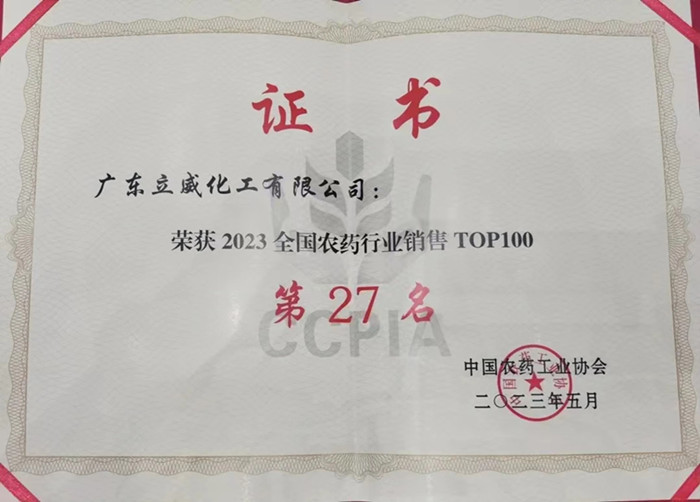 证书
广东立威化工有限公司：
荣获 2023 全国农药行业销售 TOP100
第 27 名
CCPIA
中国农药工业协会
二〇二三年五月
中国农药工业协会